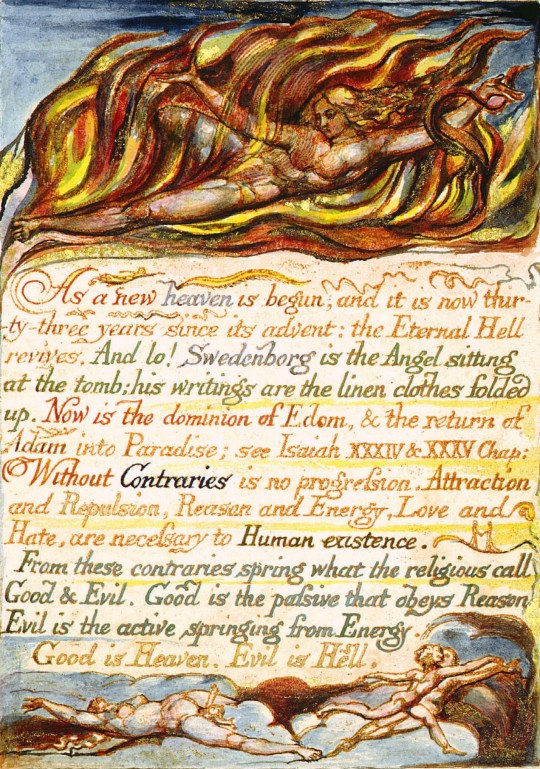 As a new heaven is begun, and it is now thir-
ty-three years since its advent: the Eternal Hell
revives. And lo! Swedenborg is the Angel sitting
at the tomb; his writings are the linen clothes folded
up. Now is the dominion of Edom, & the return of
Adam into Paradise; see Isaiah XXXIV & XXXV Chap:
Without Contraries is no progression. Attraction
and Repulsion, Reason and Energy, Love and
Hate, are necessary to Human existence.
From these contraries spring what the religious call
Good & Evil. Good is the passive that obeys Reason
Evil is the active springing from Energy.
Good is Heaven. Evil is Hell.